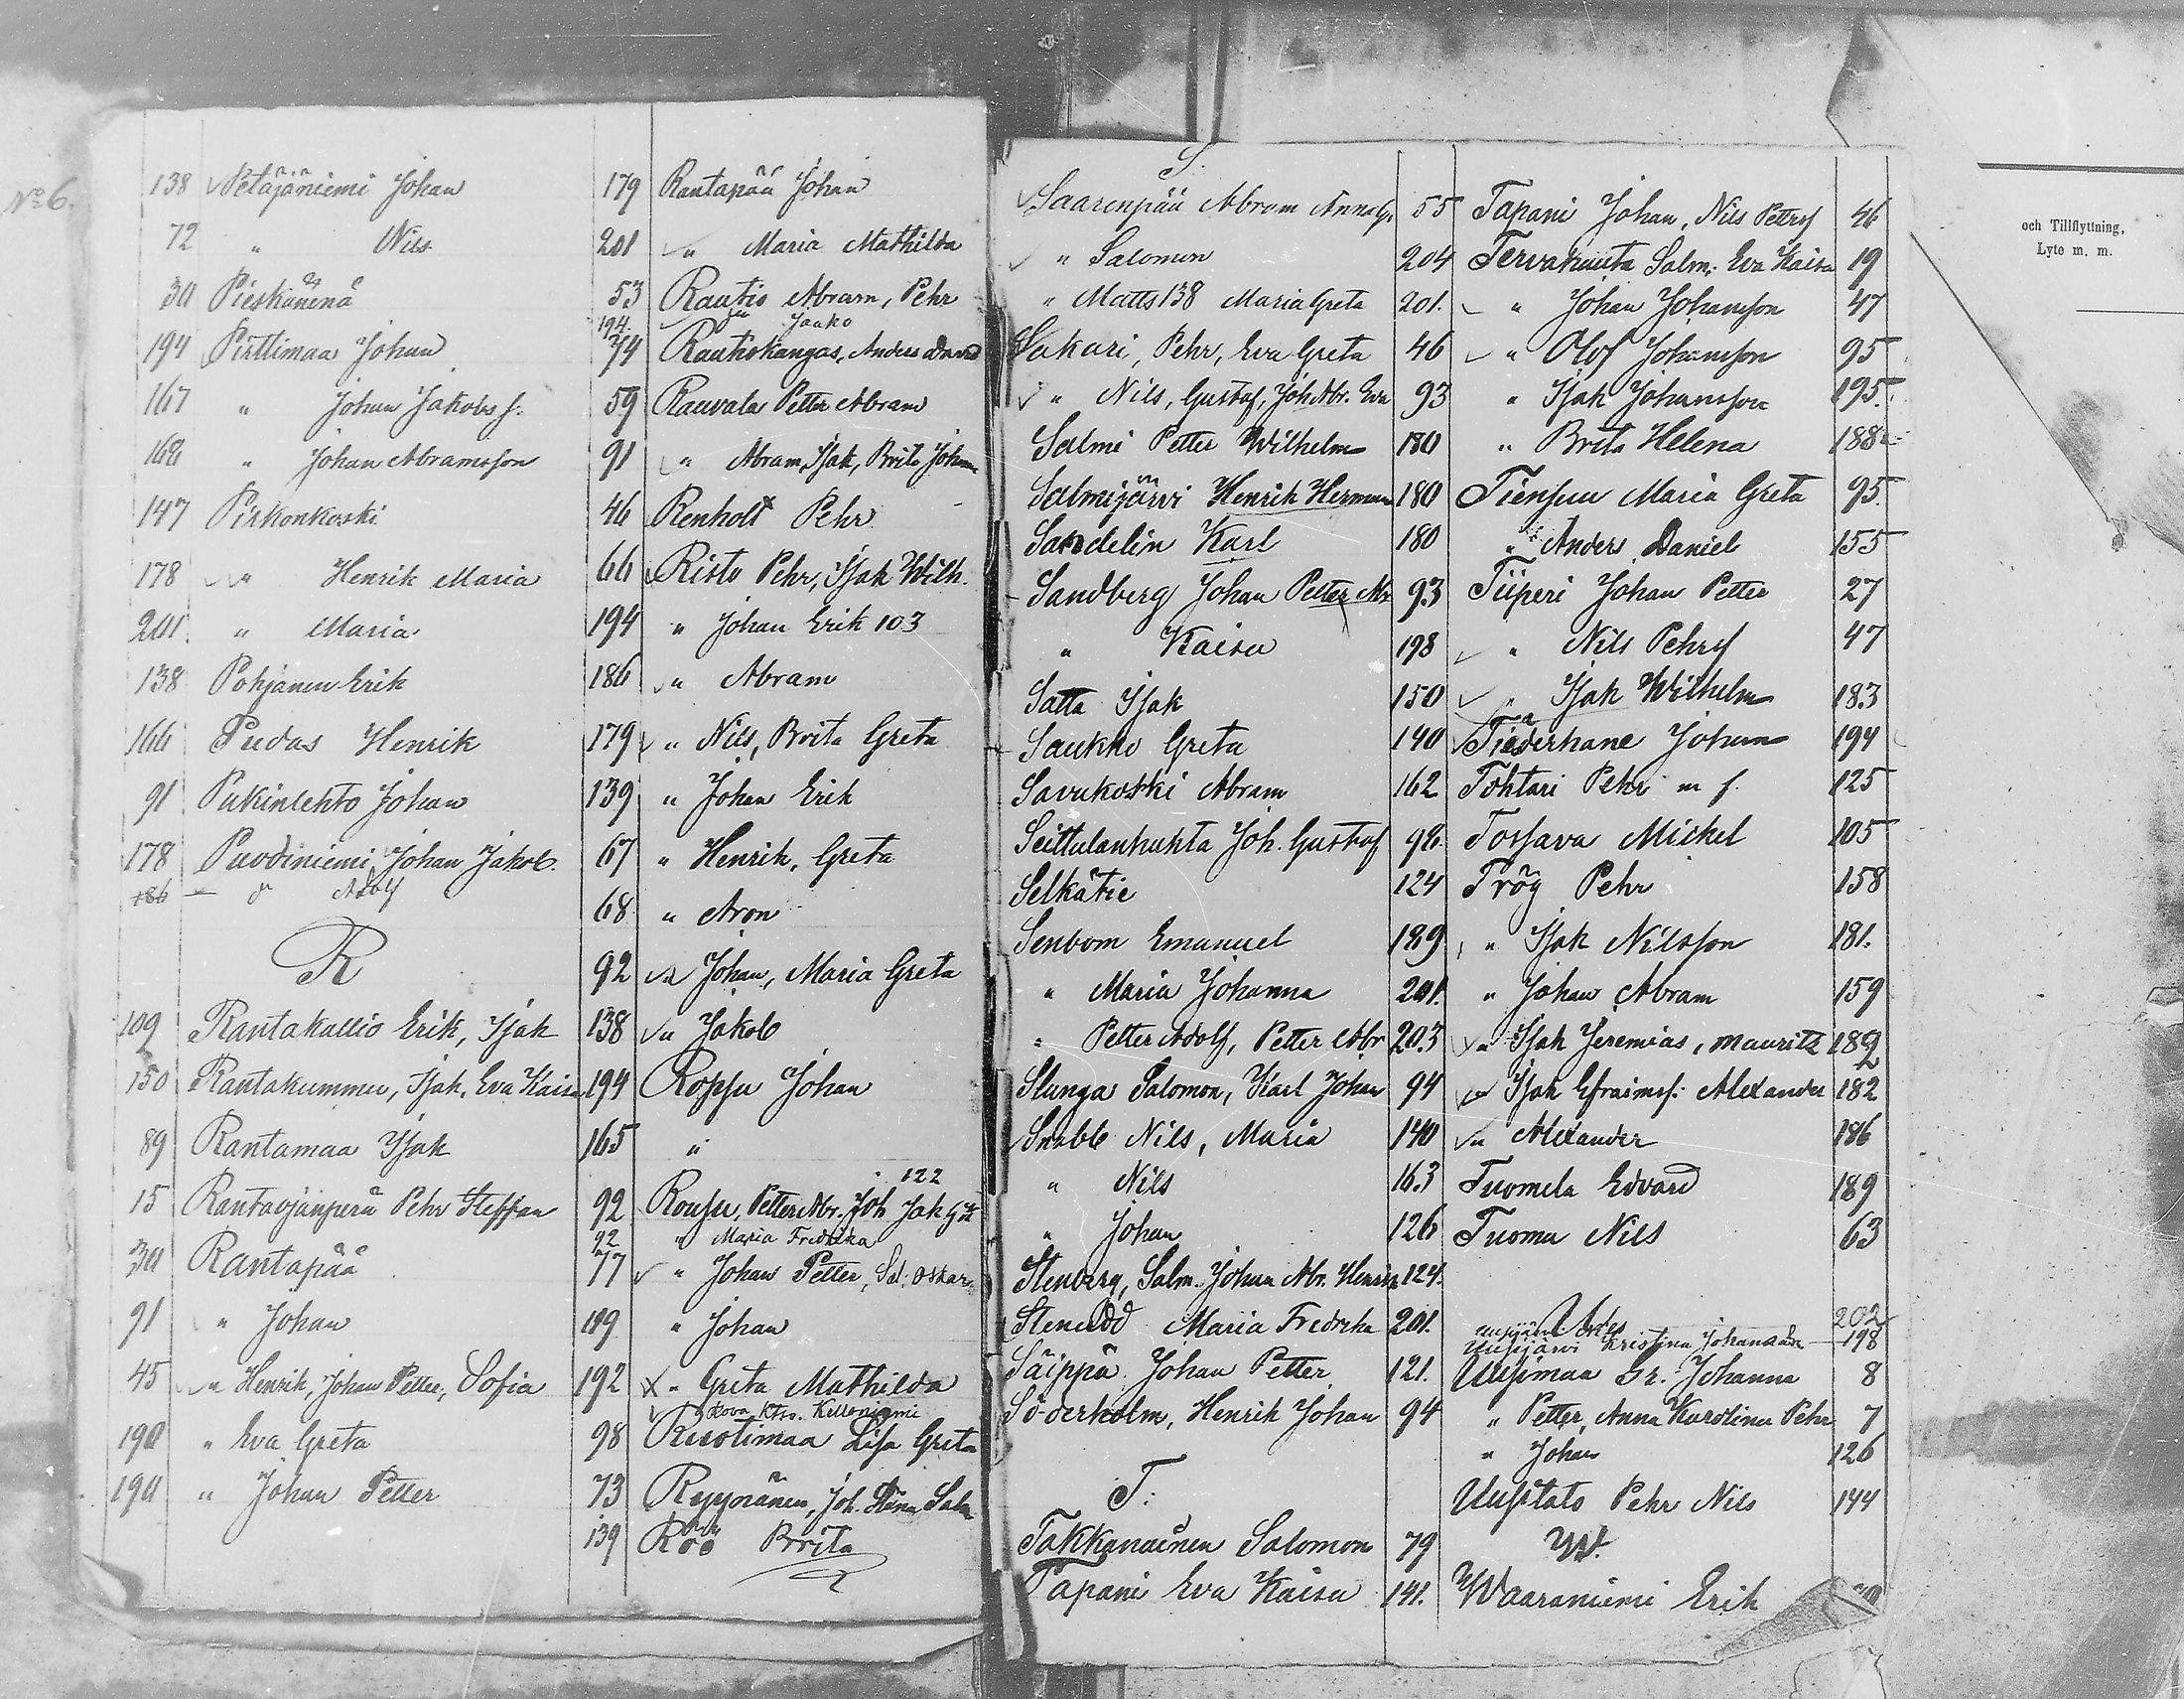 No 6.
138 Petäjäniemi Johan
72 " Nils
30 Pieskänenä
194 Pirttimaa Johan
167 " Johan Jakobs s.
168 " Johan Abramsson
147 Pirkonkoski
178 " Henrik Maria
201. " Maria
138 Pohjanen Erik
166 Pudas Henrik
91 Pukinlehto Johan
178 Puodiniemi, Johan Jakob.
186 d Adolf
R
109 Rantakallio Erik, Isak
150 Rantakummu, Isak, Eva Kaisa
89 Rantamaa Isak
15 Rantaojanperä Pehr Steffan
30 Rantapää
91 " Johan
45 " Henrik, Johan Petter, Sofia
190 " Eva Greta
190 " Johan Petter
179 Rantapää Johan
201 " Maria Mathilda
53 Rautio Abram, Pehr
194. Jaako
74 Rautiokangas, Anders David
59 Rauvala Petter Abram
91 " Abram, Isak, Brita Johan
46 Renholt Pehr
66 Risto Pehr, Isak Wilh.
194 " Johan Erik 103
186 " Abram
179 " Nils, Brita Greta
139 " Johan Erik
67 " Henrik, Greta
68 " Aron
92 " Johan, Maria Greta
138 " Jakob
194 Roppu Johan
165 "
122
92 Rousu, Petter Abr. Joh Jak
92 " Maria Fredrika
77 " Johan Petter, Sal. Oskar
189 " Johan
192 " Greta Mathilda
Kelloniemi
98 Ruotimaa Lisa Greta
73 Ryynänen, Joh. Stina Salm
139 Röö Brita
S.
Saarenpää Abram Anna Gr 55
" Salomon 204
" Matts 138 Maria Greta 201.
Sakari, Pehr, Eva Greta 46
" Nils, Gustaf, Joh Abr. Eva 93
Salmi Petter Wilhelm 180
Salmijärvi Henrik Herman 180
Sandelin Karl 180
Sandberg Johan Petter Abr 93
" Kaisa 198
Satta Isak 150
Saukko Greta 140
Savukoski Abram 162
Seittulanhuhta Joh. Gustaf 98
Selkätie 124
Senbom Emanuel 189
" Maria Johanna 201.
" Petter Adolf, Petter Abr 203
Slunga Salomon, Karl Johan 94
Snabb Nils, Maria 140
" Nils 163
" Johan 126
Stenberg, Salm. Johan Abr. Henrik 124.
Stenudd Maria Fredrika 201.
Säippä Johan Petter 121.
Söderholm, Henrik Johan 94
T.
Takkanainen Salomon 79
Tapani Eva Kaisa 141.
Tapani Johan, Nils Petters 46
Tervakuuta Salm. Eva Kaisa 19
" Johan Johansson 47
" Olof Johansson 95
" Isak Johansson 195.
" Brita Helena 188
Tiensuu Maria Greta 95
" Anders Daniel 155
Tiiperi Johan Petter 27
" Nils Pehrs 47
" Isak Wilhelm 183
Tiäderhane Johan 194
Tohtari Pehr m f. 125
Tossava Mickel 105
Trög Pehr 158
" Isak Nilsson 181.
" Johan Abram 159
" Isak Jeremias, Mauritz 189
" Isak Efraimss: Alexander 182
" Alexander 186
Tuomela Edvard 189
Tuoma Nils 63
U
202
Uusijärvi Kristina Johanna 198
Uusimaa Gr. Johanna 8
" Petter, Anna Karolina Pehr 7
" Johan 126
Uusitalo Pehr Nils 144
W.
Waaraniemi Erik
och Tillflyttning,
Lyte m. m.